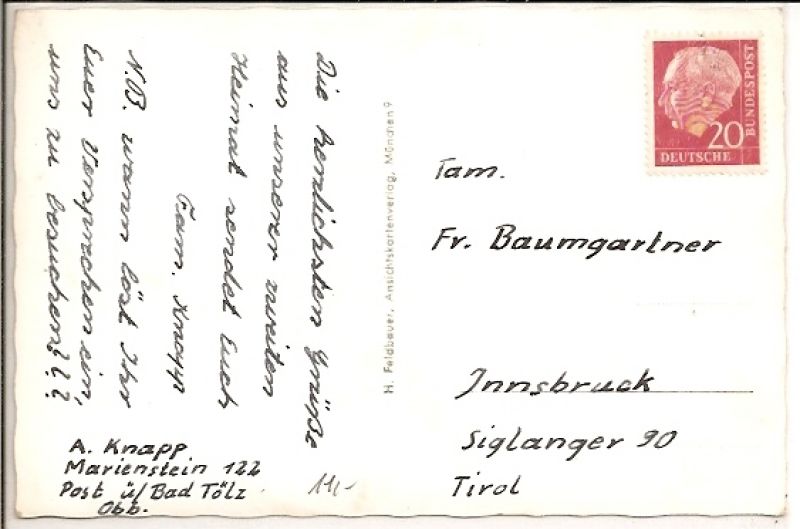 Die herzlichsten Grüße
aus unserer zweiten
Heimat sendet Euch
Fam. Knapp
N.B. wann löst Ihr
Euer Versprechen ein,
uns zu besuchen???
A. Knapp
Marienstein 122
Post ü/Bad Tölz
Obb.
H. Feldbauer, Ansichtskartenverlag, München 9
20
DEUTSCHE
BUNDESPOST
Fam.
Fr. Baumgartner
Innsbruck
Siglanger 90
Tirol